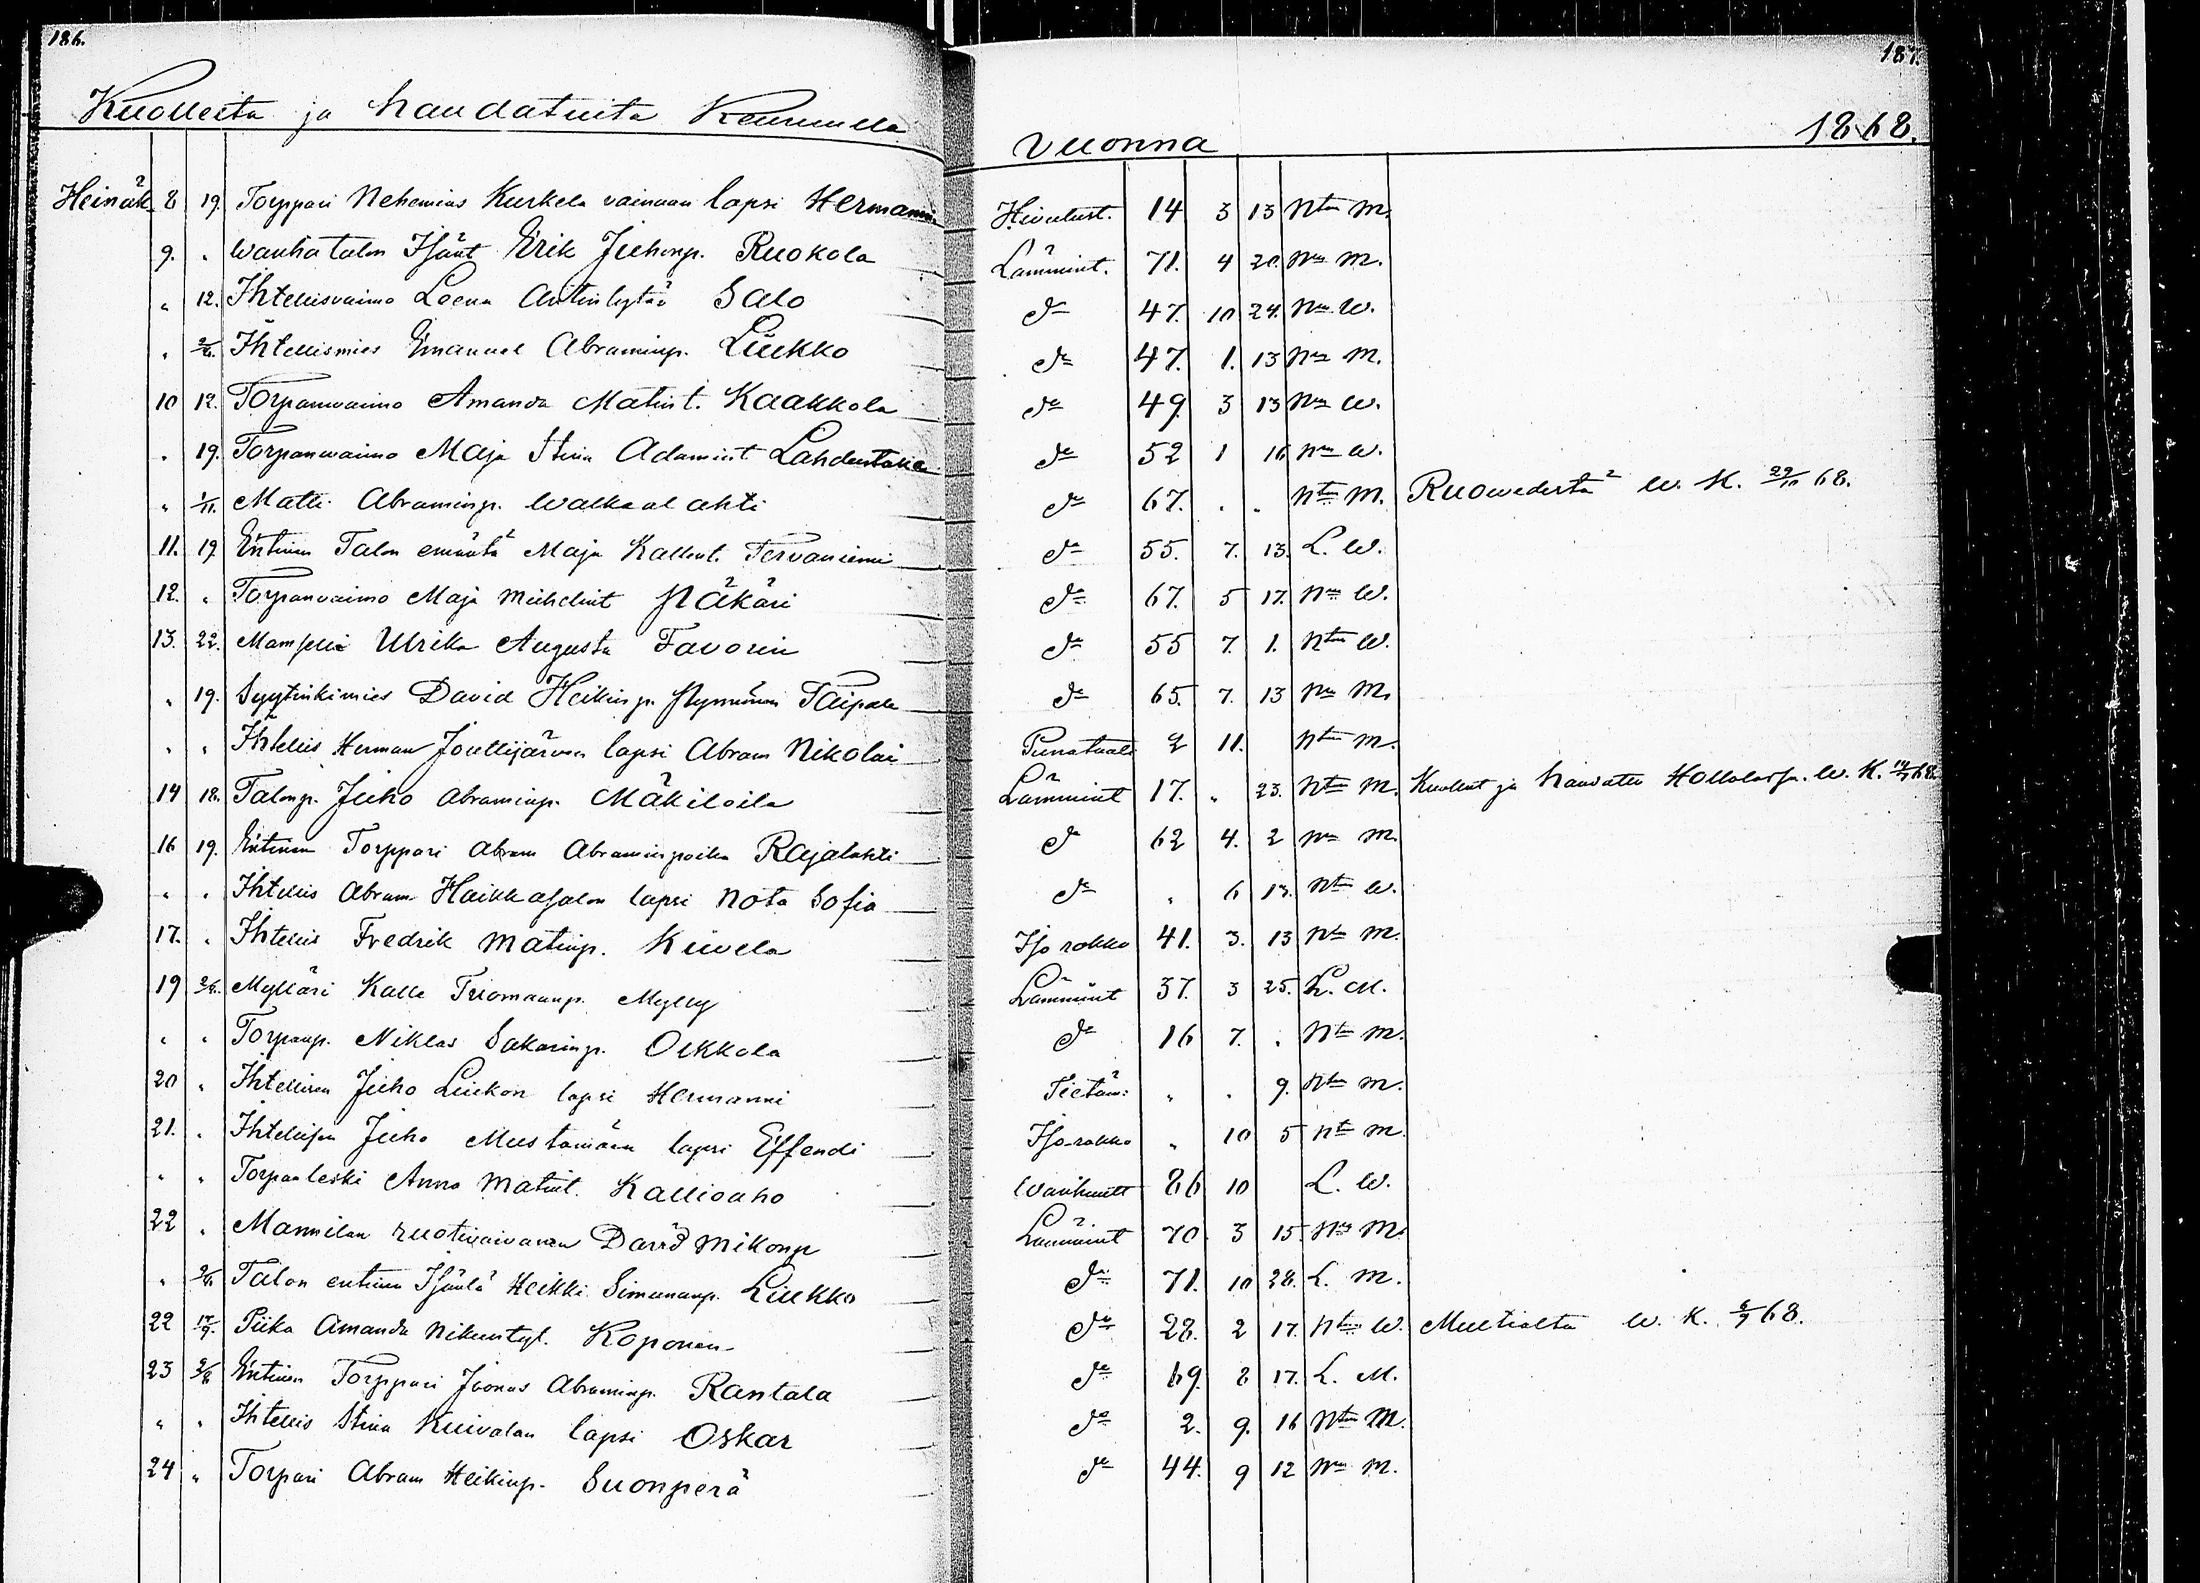 186.
187.
Kuolleita ja haudatuita Keuruulla vuonna 1868.
Heinäk. 8 19. Torppari Nehemias Kurkela vainaan lapsi Hermanni Hivutust. 14 3 13 Ntn M.
9. " Wanha talon Isänt Erik Juhonp. Ruokola Lämmint. 71. 4 20. Nn M.
" 12. Ihtellisvaimo Leena Antintytär Salo do 47. 10 24. Nn W.
" 2/8. Ihtellismies Emanuel Abraminp. Liukko do 47. 1. 13 Nn M.
10 12. Torpanwaimo Amanda Matint. Kaakkola do 49. 3 13 Nn W.
" 19. Torpanwaimo Maja Stina Adamint Lahdentaka do 52 1 16 Nn W.
" 1/11. Matti Abraminp. Walkealahti do 67. . . Ntn M. Ruowedestä W. K. 22/10 68.
11. 19 Entinen Talon emäntä Maja Kallent. Tervaniemi do 55. 7. 13. L. W.
12. " Torpanvaimo Maja Mikelint Näkäri do 67. 5 17. Nn W.
13. 22. Mamselli Ulrika Augusta Favorin do 55 7. 1. Ntn W.
" 19. Syytinkimies David Heikinp. Nyminen Taipale do 65. 7. 13 Nn M.
" " Ihtellis Herman Jouttijärven lapsi Abram Nikolai Punatauti 2 11. Ntn M.
14 18. Talonp. Juho Abraminp. Mäkiloila Lämmint 17. " 23. Ntn M. Kuollut ja haudattu Hollolassa. W. K. 14/7 68.
16 19. Entinen Torppari Abram Abraminpoika Rajalahti do 62 4. 2 Nn M.
" " Ihtellis Abram Haikkasalon lapsi Nota Sofia do " 6 13. Ntn W.
17. " Ihtellis Fredrik Matinp. Kiwela Iso rokko 41. 3. 13 Ntn M.
19 2/8. Mylläri Kalle Tuomaanp. Mylly Lämmint 37. 3 25. L. M.
" " Torpanp. Niklas Sakarinp. Oikkola do 16 7. . Ntn M.
20 " Ihtellisen Juho Liukon lapsi Hermanni Tietäm: " . 9. Ntn M.
21. " Ihtellisen Juho Mustamäen lapsi Effendi Iso-rokko " 10 5 Nt M.
" " Torpanleski Anna Matint. Kallioaho Wanhuutt 86 10 L. W.
22 " Mannilan ruotivaivanen David Mikonp Lämmint 70. 3 15 Nn M.
" 2/8. Talon entinen Isäntä Heikki Simunanp. Liukko do 71. 10 28. L. M.
22 14/9. Piika Amanda Nikuntyt. Koponen do 28. 2 17. Ntn W. Multialta W. K. 6/9 68.
23 2/8 Entinen Torppari Joonas Abraminp. Rantala do 69. 8 17. L. M.
" " Ihtellis Stina Kuivalan lapsi Oskar do 2. 9. 16 Ntn M.
24 " Torpari Abram Heikinp. Suonperä do 44. 9 12 Nn M.